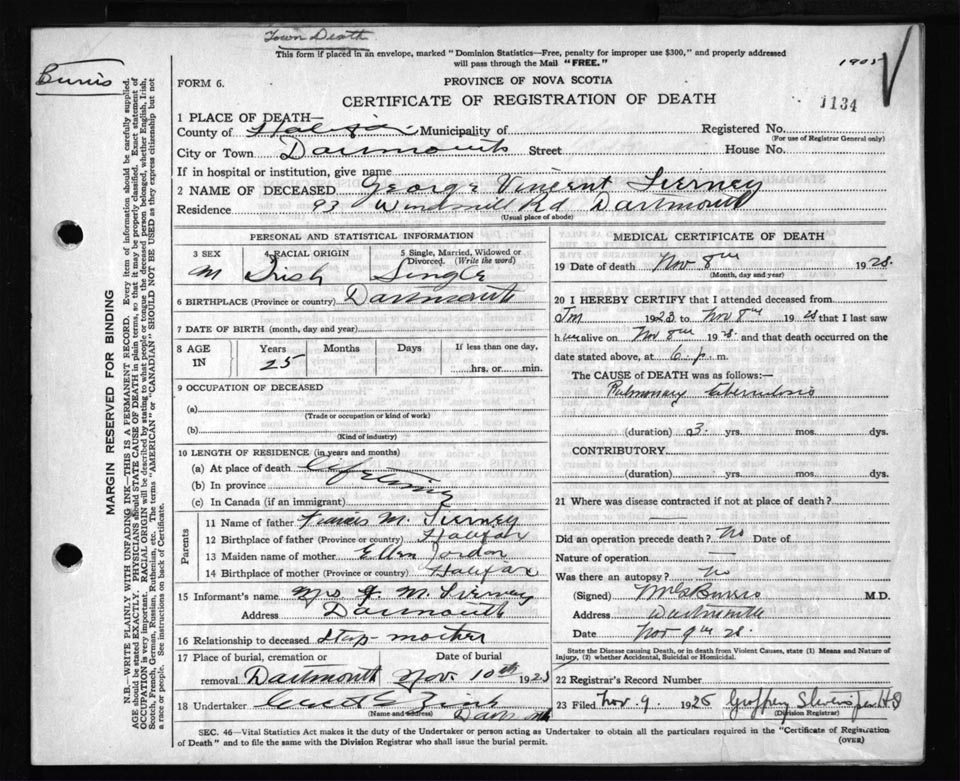 Town Death
This form if placed in an envelope, marked "Dominion Statistics—Free, penalty for improper use $300," and properly addressed
will pass through the Mail "FREE."
Burris
1905
1134
FORM 6.
PROVINCE OF NOVA SCOTIA
CERTIFICATE OF REGISTRATION OF DEATH
MARGIN RESERVED FOR BINDING
N.B.—WRITE PLAINLY WITH UNFADING INK—THIS IS A PERMANENT RECORD. Every item of information should be carefully supplied.
AGE should be stated EXACTLY. PHYSICIANS should STATE CAUSE OF DEATH in plain terms, so that it may be properly classified. Exact statement of
OCCUPATION is very important. RACIAL ORIGIN will be described by stating to what people or tongue the deceased person belonged, whether English, Irish,
Scotch, French, German, Russian, Ruthenian, etc. The terms "AMERICAN" or "CANADIAN" SHOULD NOT BE USED as they express citizenship but not
a race or people. See instructions on back of Certificate.
1 PLACE OF DEATH—
County of Halifax Municipality of Registered No.
(For use of Registrar General only)
City or Town Dartmouth Street House No.
If in hospital or institution, give name
2 NAME OF DECEASED George Vincent Tierney
Residence 93 Windmill Rd Dartmouth
(Usual place of abode)
PERSONAL AND STATISTICAL INFORMATION
3 SEX 4 RACIAL ORIGIN 5 Single, Married, Widowed or
Divorced. (Write the word)
M Irish Single
6 BIRTHPLACE (Province or country) Dartmouth
7 DATE OF BIRTH (month, day and year)
8 AGE IN Years Months Days If less than one day,
25 hrs. or min.
9 OCCUPATION OF DECEASED
(a)
(Trade or occupation or kind of work)
(b)
(Kind of industry)
10 LENGTH OF RESIDENCE (in years and months)
(a) At place of death Lifetime
(b) In province
(c) In Canada (if an immigrant)
Parents
11 Name of father Francis M. Tierney
12 Birthplace of father (Province or country) Halifax
13 Maiden name of mother Ellen Jordan
14 Birthplace of mother (Province or country) Halifax
15 Informant's name Mrs M. Tierney
Address Dartmouth
16 Relationship to deceased Step-mother
17 Place of burial, cremation or Date of burial
removal Dartmouth Nov. 10th 1928
18 Undertaker Zink
(Name and address) Dartmouth
MEDICAL CERTIFICATE OF DEATH
19 Date of death Nov 8th 1928.
(Month, day and year)
20 I HEREBY CERTIFY that I attended deceased from
1928 to Nov 8th 1928 that I last saw
him alive on Nov 8th 1928. and that death occurred on the
date stated above, at 6 p. m.
The CAUSE of DEATH was as follows:—
Pulmonary tuberculosis
(duration) 3. yrs. mos. dys.
CONTRIBUTORY.
(duration) yrs. mos. dys.
21 Where was disease contracted if not at place of death?
—
Did an operation precede death? No Date of
Nature of operation —
Was there an autopsy? No
(Signed) Burris M.D.
Address Dartmouth
Date Nov 9th 28.
State the Disease causing Death, or in death from Violent Causes, state (1) Means and Nature of
Injury, (2) whether Accidental, Suicidal or Homicidal.
22 Registrar's Record Number
23 Filed Nov. 9. 1928 Geoffrey Stevens
(Division Registrar)
SEC. 46—Vital Statistics Act makes it the duty of the Undertaker or person acting as Undertaker to obtain all the particulars required in the "Certificate of Registration
of Death" and to file the same with the Division Registrar who shall issue the burial permit.
(OVER)